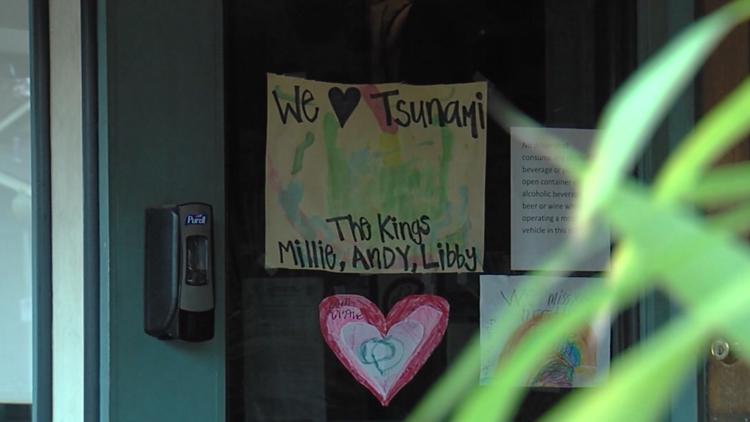 We ♥ Tsunami
The Kings
Millie, ANDY, Libby
Purell
consum
beverage or
open container
alcoholic bever
beer or wine w
operating a m
vehicle in this
We miss